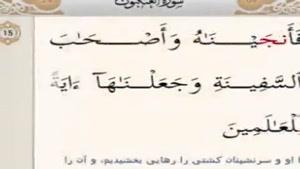 سورة العنكبوت
١٥
فَأَنجَيْنَـٰهُ وَأَصْحَـٰبَ
ٱلسَّفِينَةِ وَجَعَلْنَـٰهَآ ءَايَةً
لِّلْعَـٰلَمِينَ
او و سرنشینان کشتی را رهایی بخشیدیم، و آن را